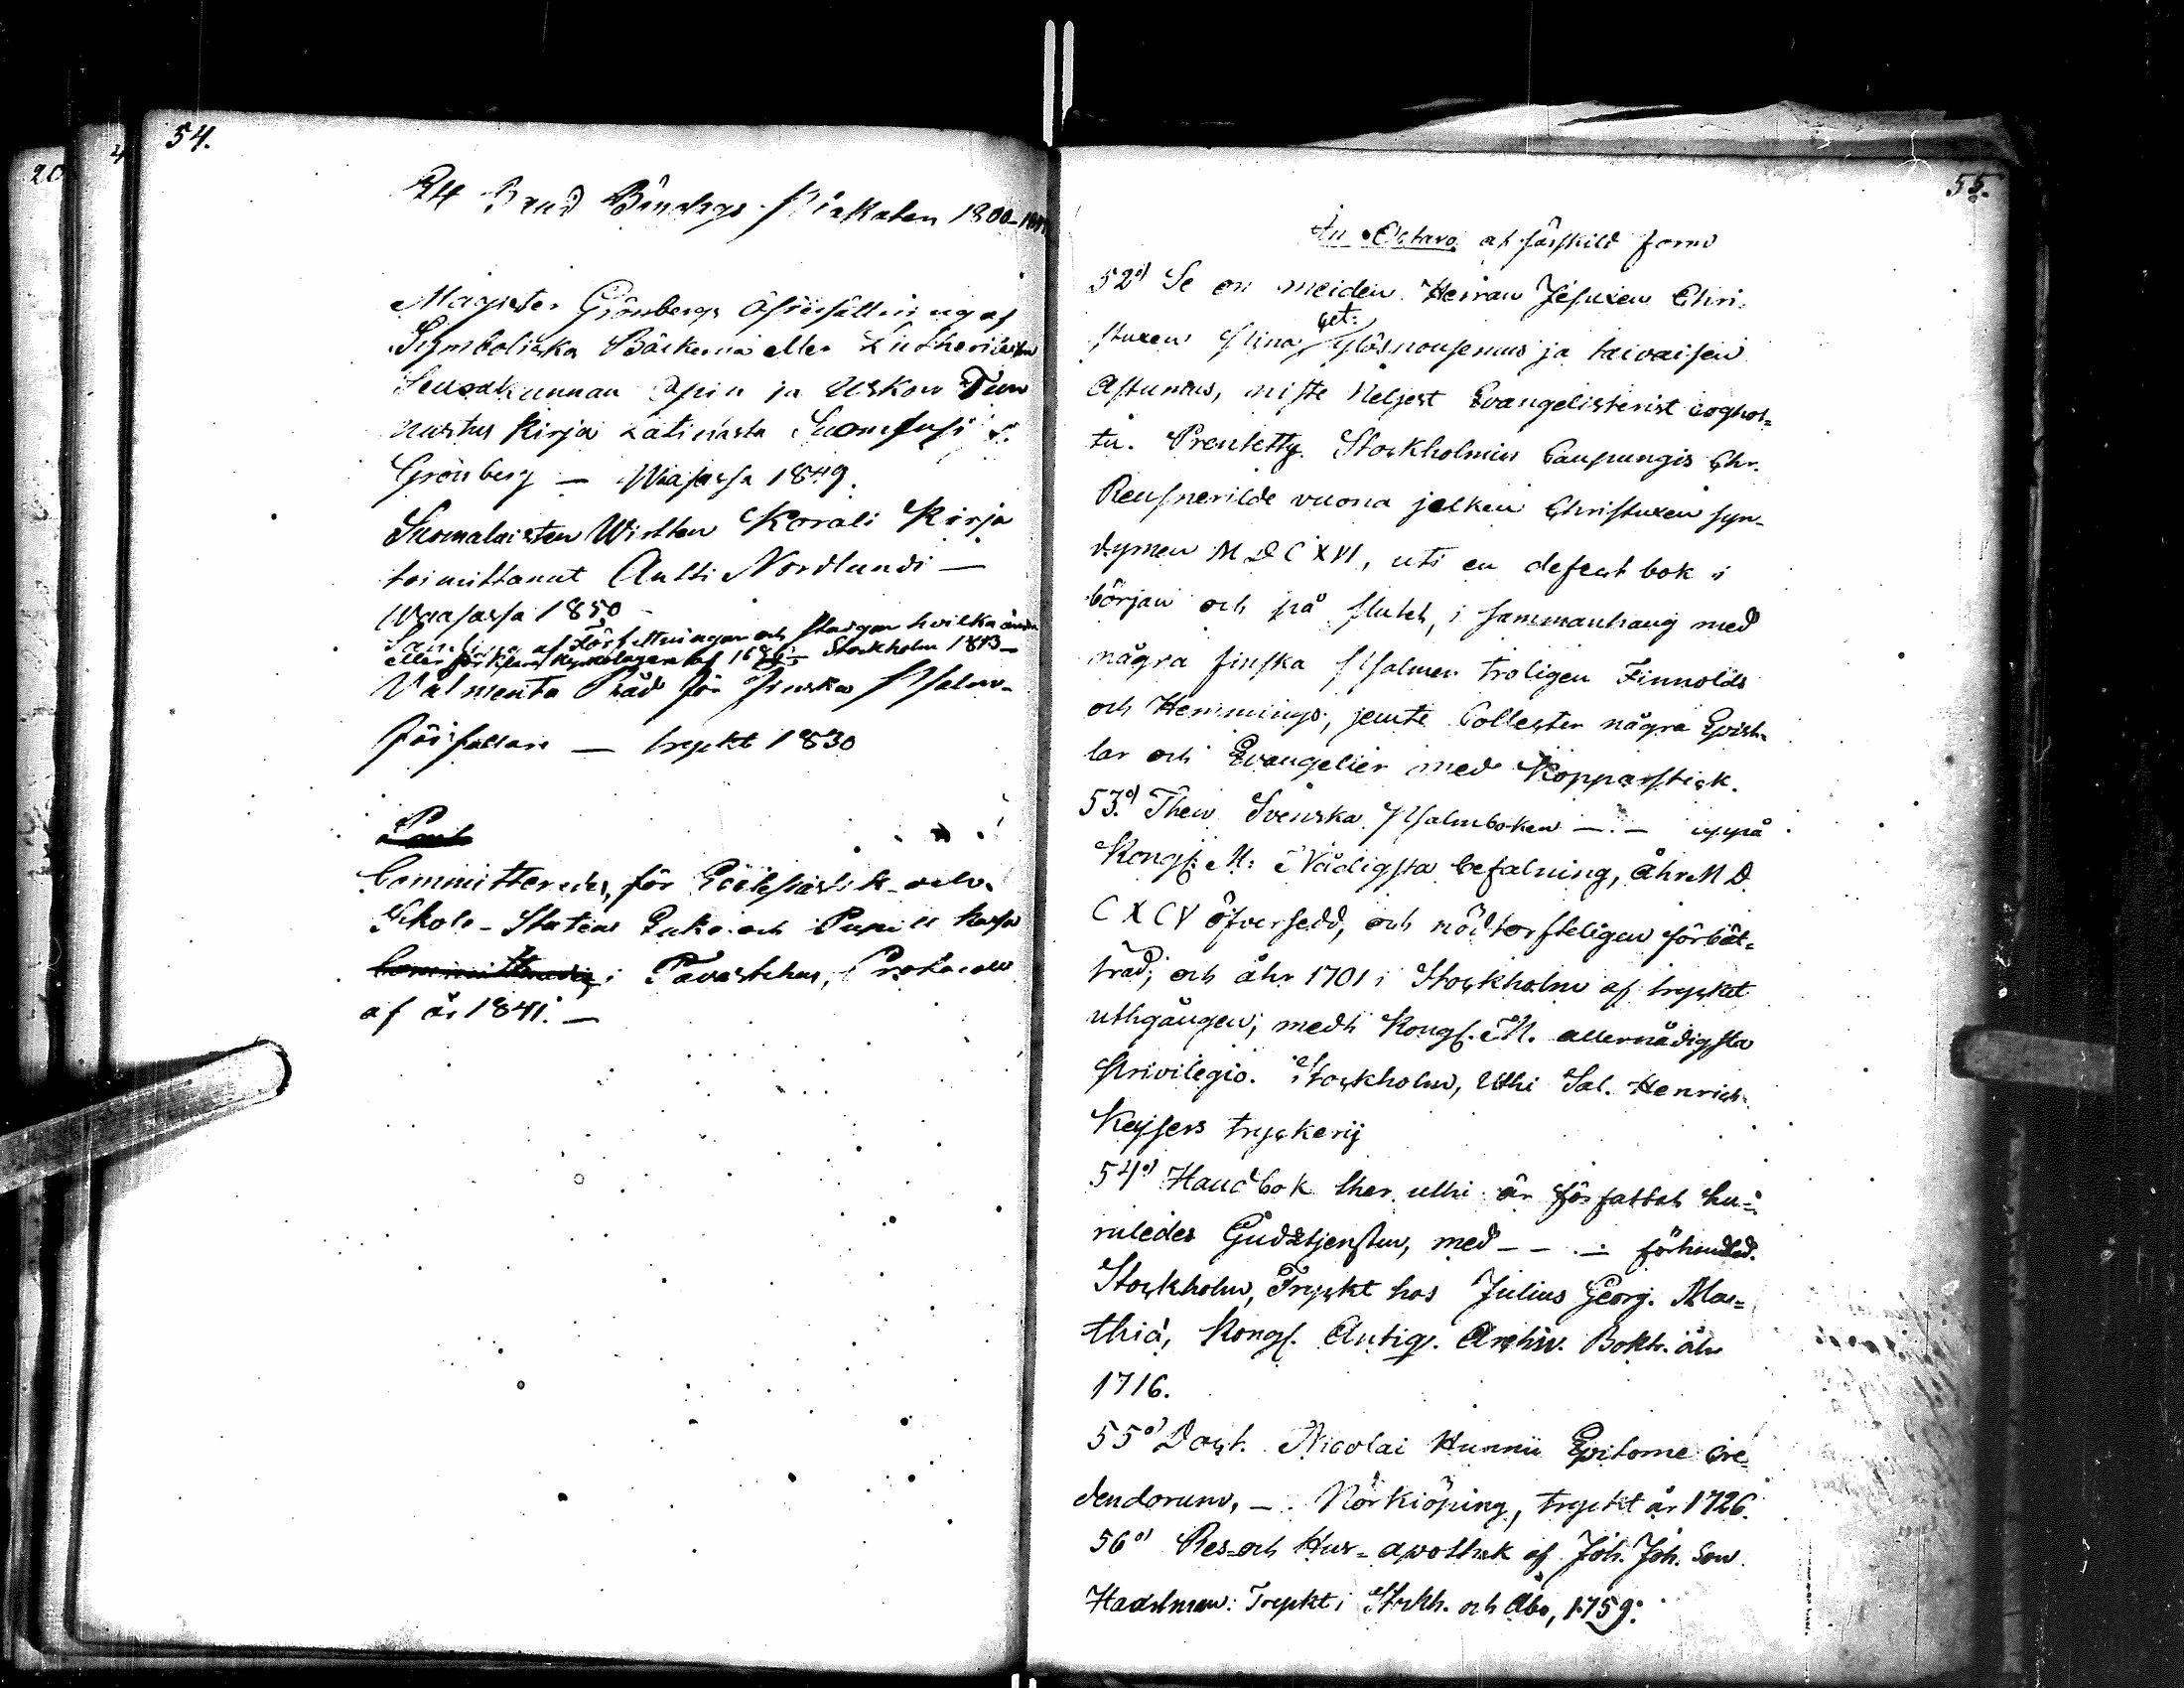 54.
Ett Band Bönedags-Plakaten 1800-
Magister Grönbergs öfversättning af
Symboliska Böckerna eller Lutheriusten
Seurakunnan Opin ja Uskon Tun
nustus Kirja Latinasta Suomensi
Grönberg — Waasassa 1849.
Suomalaisten Wirtten Korali Kirja
toimittanut Antti Nordlundi —
Waasassa 1850
Samling af Författningar och Stadgar hvilka ändra
eller förklara Kyrkolagen af 1686 — Stockholm 1813 —
Välmenta Råd för Finska Psalm-
författare — tryckt 1830
Committerades för Ecclesiastik- och
Schole-Statens Enke- och Pupill Kassa
Committerades i Tavastehus, Protocoll
af år 1841. —
55.
In Octavo af särskild form
52.) Se on meiden Herran Jesuxen Chri-
stuxen Pina, ylösnousemus ja taivaisen
get:
Astumus, niste Neljest Evangelisterist coghot-
tu. Prentetty Stockholmin Caupungis Chr.
Reusnerilde vuona jelken Christuxen syn-
dymen MDCXVI, uti en defect bok i
början och på slutet, i sammanhang med
några finska Psalmer troligen Finnolds
och Hemmings, jemte Collecter några Epist-
lar och Evangelier med Kopparstick.
53.) Then Svenska Psalmboken — . — uppå
Kongl. M: Nådigsta befalning, åhr MD
CXCV öfversedd, och nödtorfteligen förbät-
trad; och åhr 1701 i Stockholm af trycket
uthgången; medh Kongl. M. allernådigsta
Privilegio. Stockholm, Uthi Sal. Henrich
Keysers tryckerij
54.) Handbok ther uthi är författat hu-
ruledes Gudztjensten, med - - . — förhandlad.
Stockholm, Tryckt hos Julius Georg. Mat-
thiæ, Kongl. Antiq. Archiv. Boktr. åhr
1716.
55.) Doct. Nicolai Hunnii Epitome Cre-
dendorum, — . Norkiöping, tryckt år 1726.
56.) Res- och Hus-apothek af Joh. Joh. Son
Haartman: Tryckt i Stockh. och Åbo, 1759.